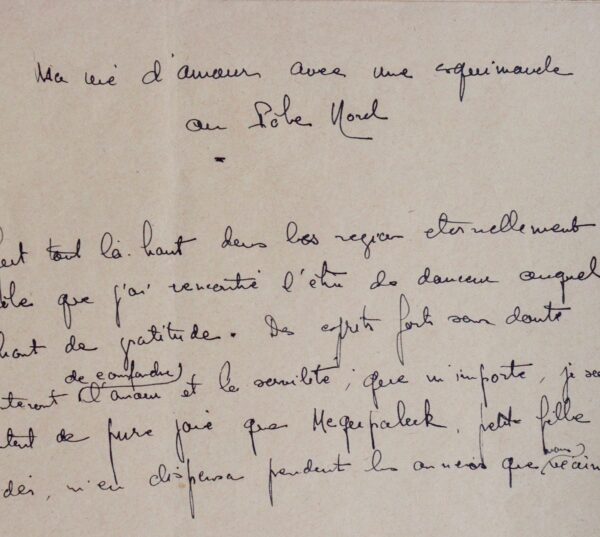 Ma vie d'amour avec une esquimaude
au Pôle Nord
est tout là-haut dans les regions eternellement
que j'ai rencontré l'être de douceur auquel
de gratitude. Des esprits forts sans doute
de confondre
l'amour et la servilité ; que m'importe, je
de pure joie que Mequpaluk, petite fille
m'en dispensa pendant les années que
nous